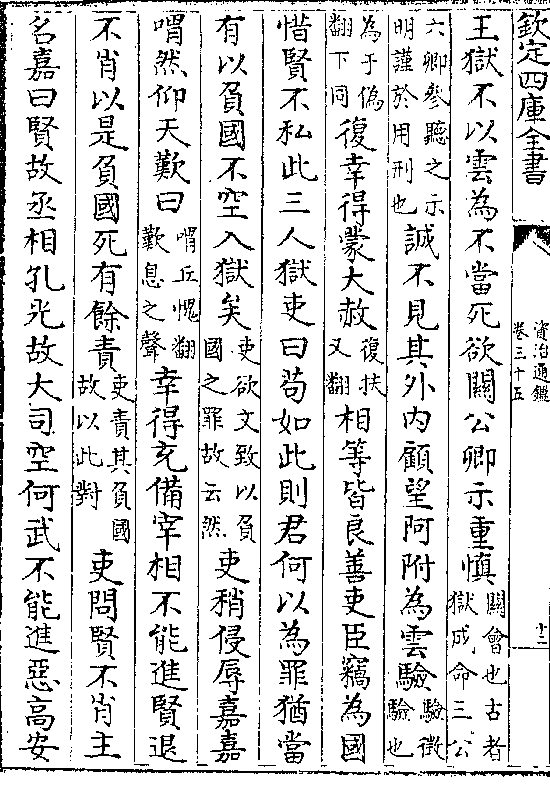 欽定四庫全書
資治通鑑
卷三十五
十二
王獄不以雲為不當死欲關公卿示重慎關會也古者獄成命三公
六卿參聽之示明謹於用刑也誠不見其外内顧望阿附為雲驗驗徵驗也
為于偽翻下同復幸得蒙大赦復扶又翻相等皆良善吏臣竊為國
惜賢不私此三人獄吏曰苟如此則君何以為罪猶當
有以負國不空入獄矣吏欲文致以負國之罪故云然吏稍侵辱嘉嘉
喟然仰天歎曰喟丘愧翻歎息之聲幸得充備宰相不能進賢退
不肖以是負國死有餘責吏責其負國故以此對吏問賢不肖主
名嘉曰賢故丞相孔光故大司空何武不能進惡高安